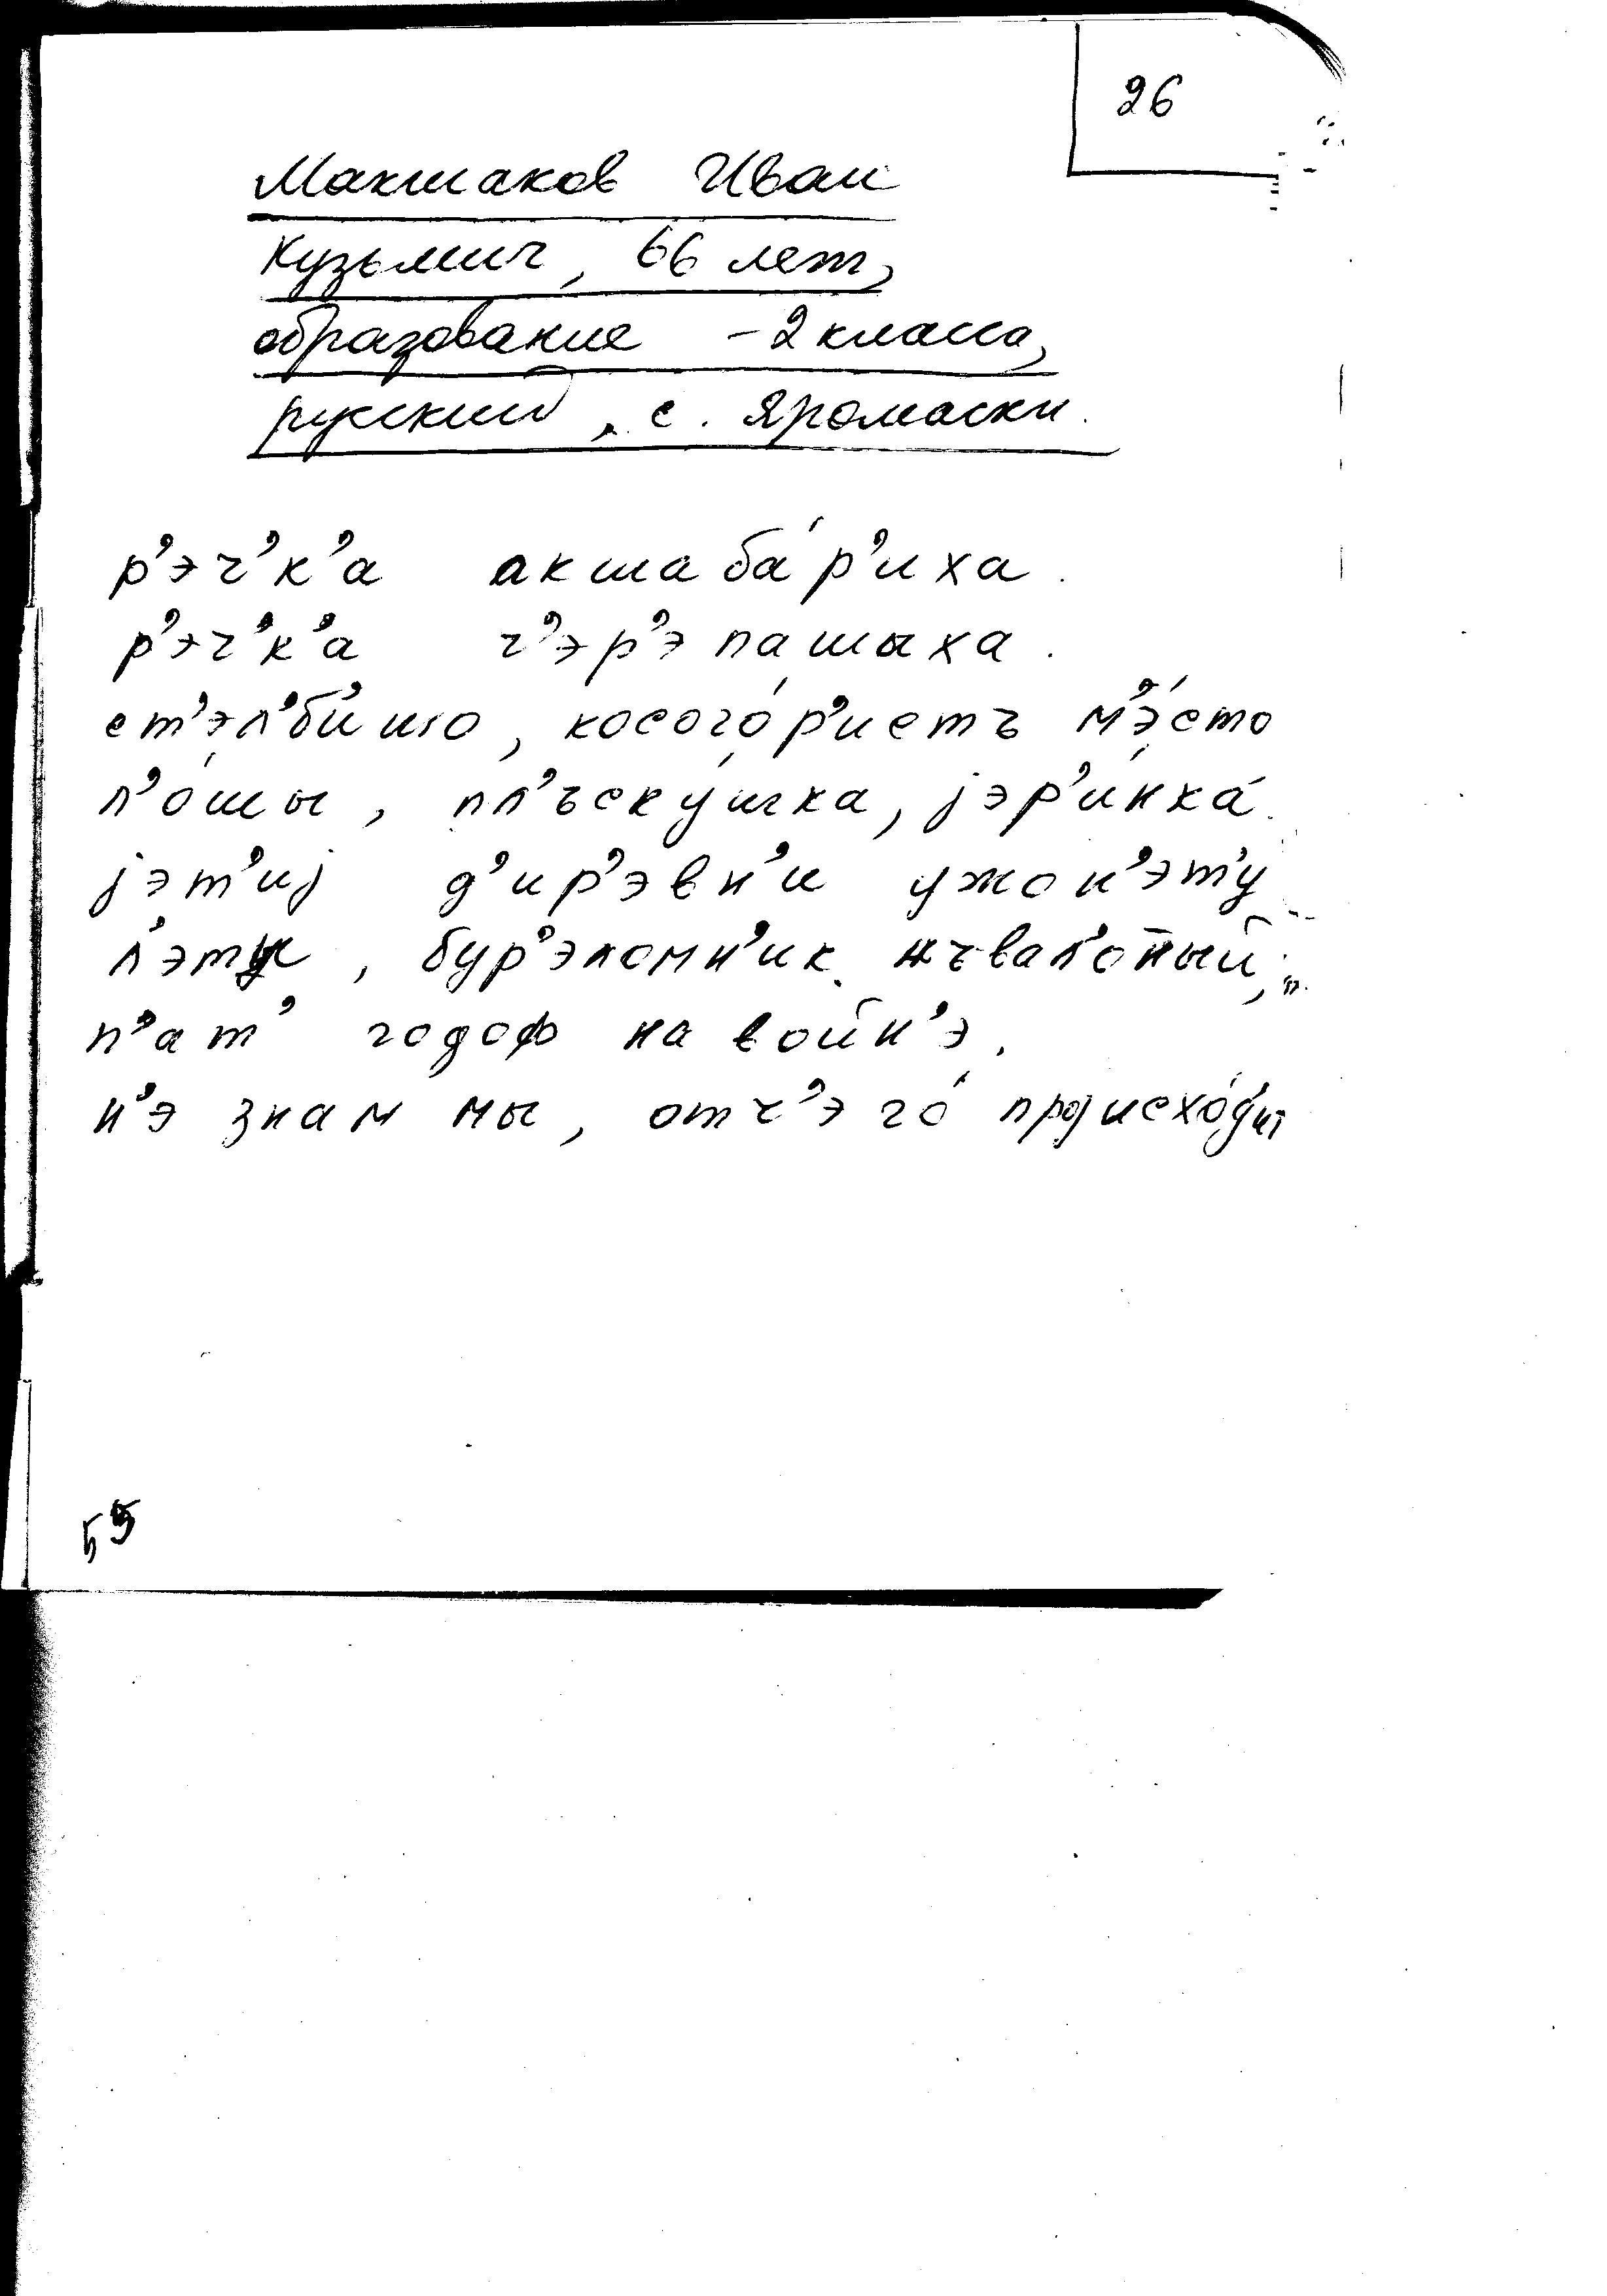 26
Макшаков Иван
Кузьмич, 66 лет,
образование – 2 класса,
русский, с. Яромаски.
р’эч’к’а акшаба́р’иха.
р’эч’к’а ч’эр’эпашыха.
ст’эл’би́що, косого́р’истъ м’э́сто
л’о́шы, пл’ъску́шка, jэр’и́нка́.
jэт’иj д’ир’эвн’и ужо н’эту
л’эты, бур’эломн’ик нъвал’о́ный,
п’ат’ годоф на войн’э.
н’э знам мы, отч’эго́ проjисхо́д’ит
55